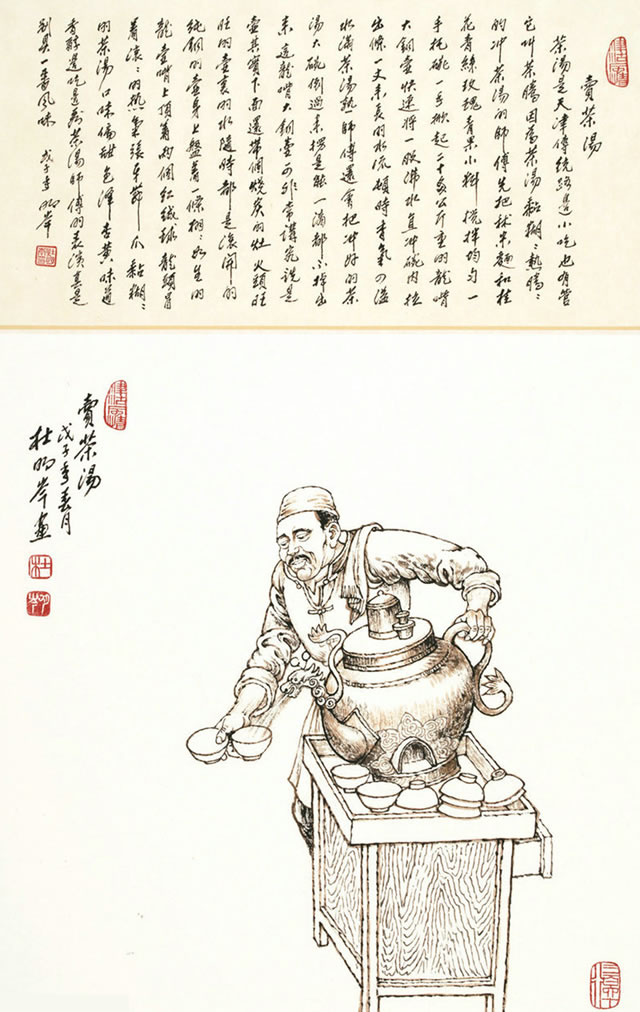 賣茶湯
茶湯是天津傳統路邊小吃也有管
它叫茶腾因為茶湯黏糊〻熱腾〻
的冲茶湯的師傅先把秫米麵和桂
花青絲玫瑰青果小料攪拌均勻一
手托碗一手掀起二十多公斤重的龍嘴
大銅壺快速將一股沸水直冲碗内拉
出條一丈来長的水流頓時香氣四溢
水滿茶湯熟師傅還會把冲好的茶
湯大碗倒過来楞是能一滴都不掉出
来這龍嘴大銅壺可非常講究說是
壺其實下面還帶個燒炭的灶火頭旺
旺的壺裏的水隨時都是滚開的
純銅的壺身上盤着一條栩〻如生的
龍壺嘴上頂着两個红絨球龍頭冒
着滚〻的熱氣張牙舞爪黏糊〻
的茶湯口味偏甜色澤杏黄味道
香醇還吃是為茶湯師傅的表演真是
别具一番風味 戊子年 明岑
賣茶湯
戊子年春月
杜明岑畫
杜
明岑